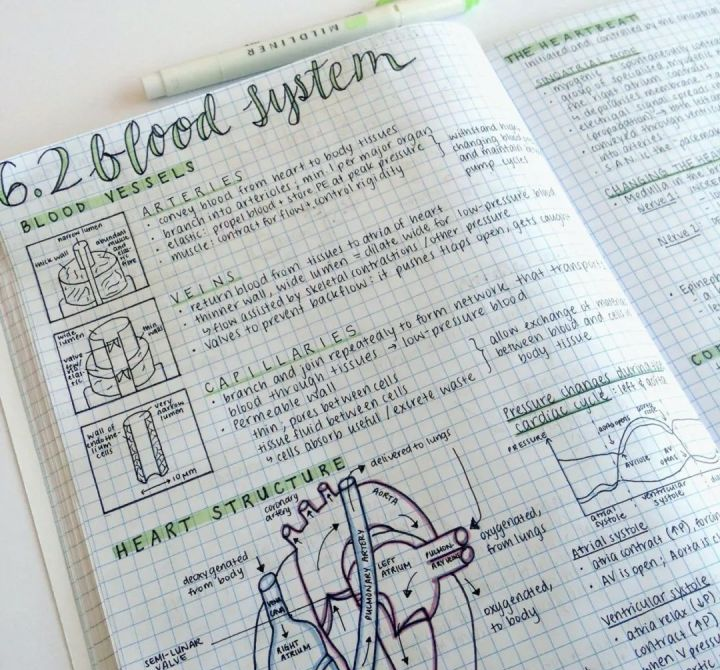 MILDLINER
6.2 blood system
BLOOD VESSELS
narrow lumen
thick wall
abundant muscle and elastic fibre
ARTERIES
• convey blood from heart to body tissues
• branch into arterioles; min 1 per major organ
• elastic: propel blood + store PE at peak pressure
• muscle: contract for flow + control rigidity
withstand high,
changing blood
and maintain
pump cycles
wide lumen
thin wall
valve
VEINS
• return blood from tissues to atria of heart
• thinner wall, wide lumen = dilate wide for low-pressure blood
↳ flow assisted by skeletal contractions / other pressure
• valves to prevent backflow: it pushes flaps open, gets caught
wall of endothelium cells
very narrow lumen
10 µm
CAPILLARIES
• branch and join repeatedly to form network that transports
blood through tissues → low-pressure blood
• permeable wall
thin; pores between cells
tissue fluid between cells
↳ cells absorb useful / excrete waste
allow exchange of material
between blood and cells in
body tissue
HEART STRUCTURE
coronary artery
delivered to lungs
AORTA
PULMONARY ARTERY
LEFT ATRIUM
PULMONARY VEINS
oxygenated,
from lungs
oxygenated,
to body
deoxygenated
from body
VENA CAVA
RIGHT ATRIUM
SEMI-LUNAR
VALVE
Pressure changes during
cardiac cycle: left & aorta
PRESSURE
aorta opens
aorta close
AV close
AV opens
atrial systole
ventricular systole
Atrial systole
• atria contract (↑P), forcing
• AV is open; Aorta is
Ventricular systole
• atria relax (↓P)
contract (↑P)
THE HEARTBEAT
initiated and controlled by the sinoatrial
SINOATRIAL NODE
• myogenic: spontaneously
• group of specialised
the right atrium controls
• depolarises membrane →
• electrical signal spreads
(propagation) → both
• conveyed through
into arteries
• S.A.N. is the "pacemaker
CHANGING THE HEA
• Medulla in the br
Nerve 1:
Nerve 2:
• Epineph